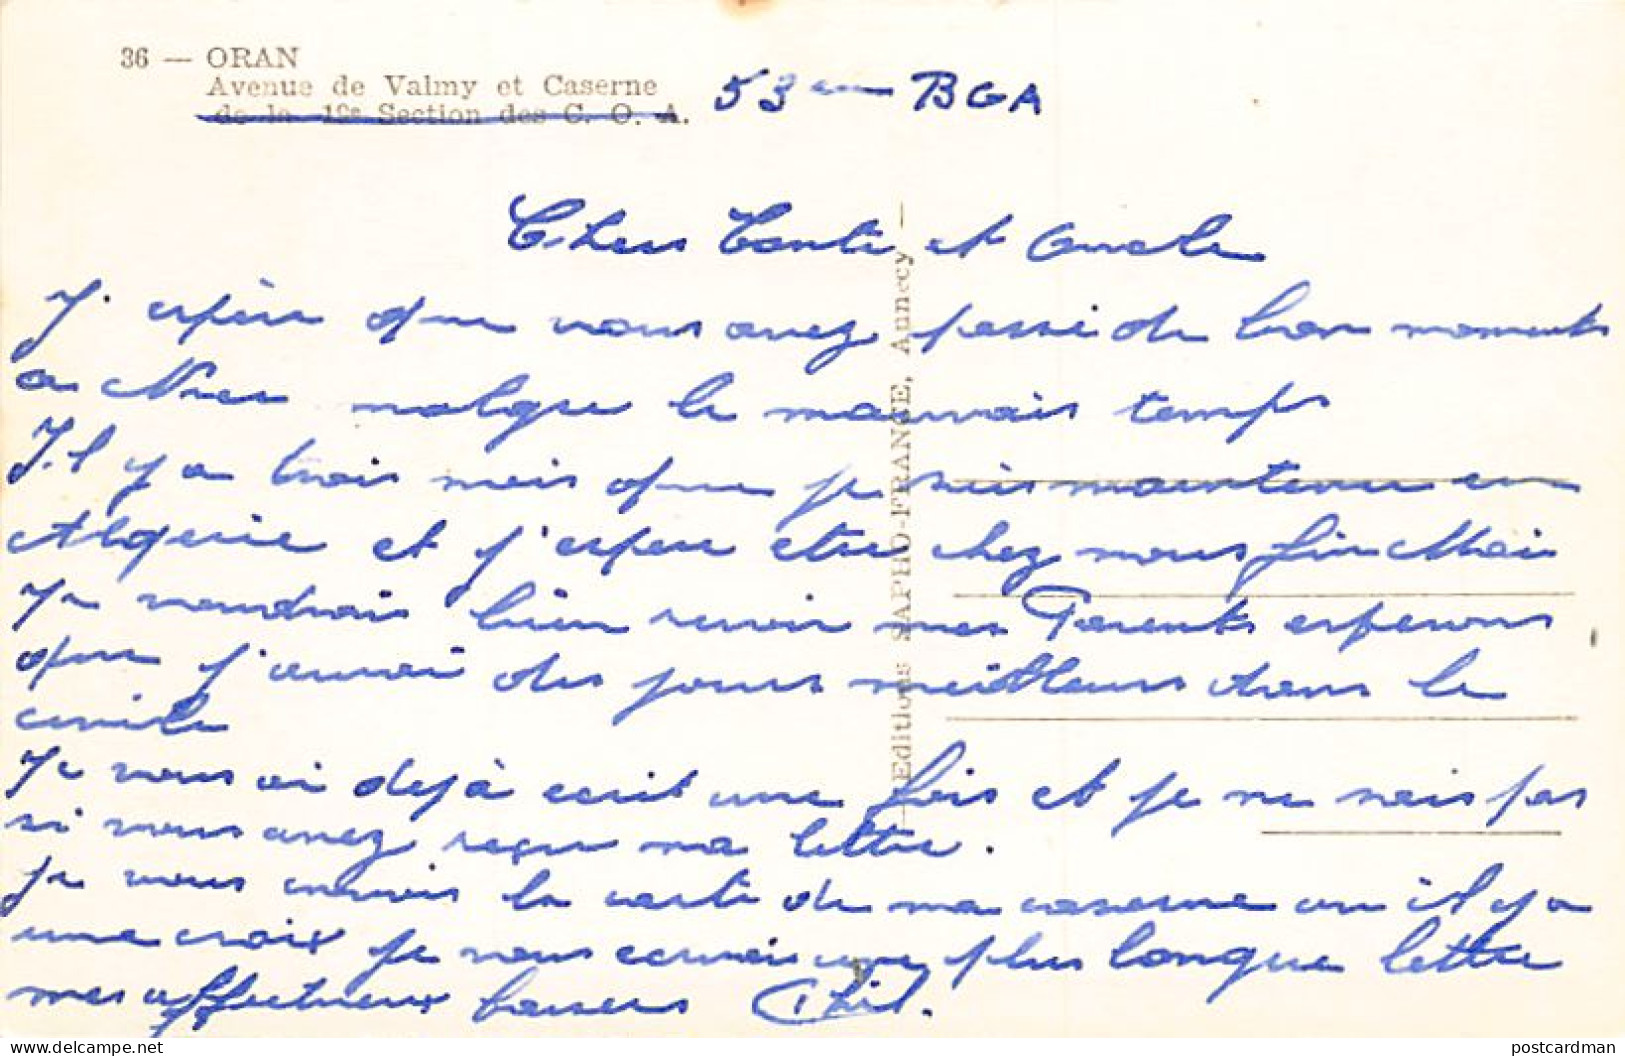 36 — ORAN
Avenue de Valmy et Caserne
de la 19e Section des C. O. A.
53 eme BGA
Chers Tante et Oncle
J'espère que vous avez passé de bon moments
a Nice malgre le mauvais temps
Il y a trois mois que je suis maintenant en
Algerie et j'espere etre chez nous fin Mai
Je voudrais bien revoir mes Parents esperons
que j'aurai des jours meilleurs dans le
civile
Je vous ai dejà ecrit une fois et je ne sais pas
si vous avez reçu ma lettre.
Je vous envois la carte de ma caserne ou il y a
une croix je vous ecrirais une plus longue lettre
mes affectueux baisers Phil.
Editions SAPHO-FRANCE, Annecy
delcampe.net
postcardman